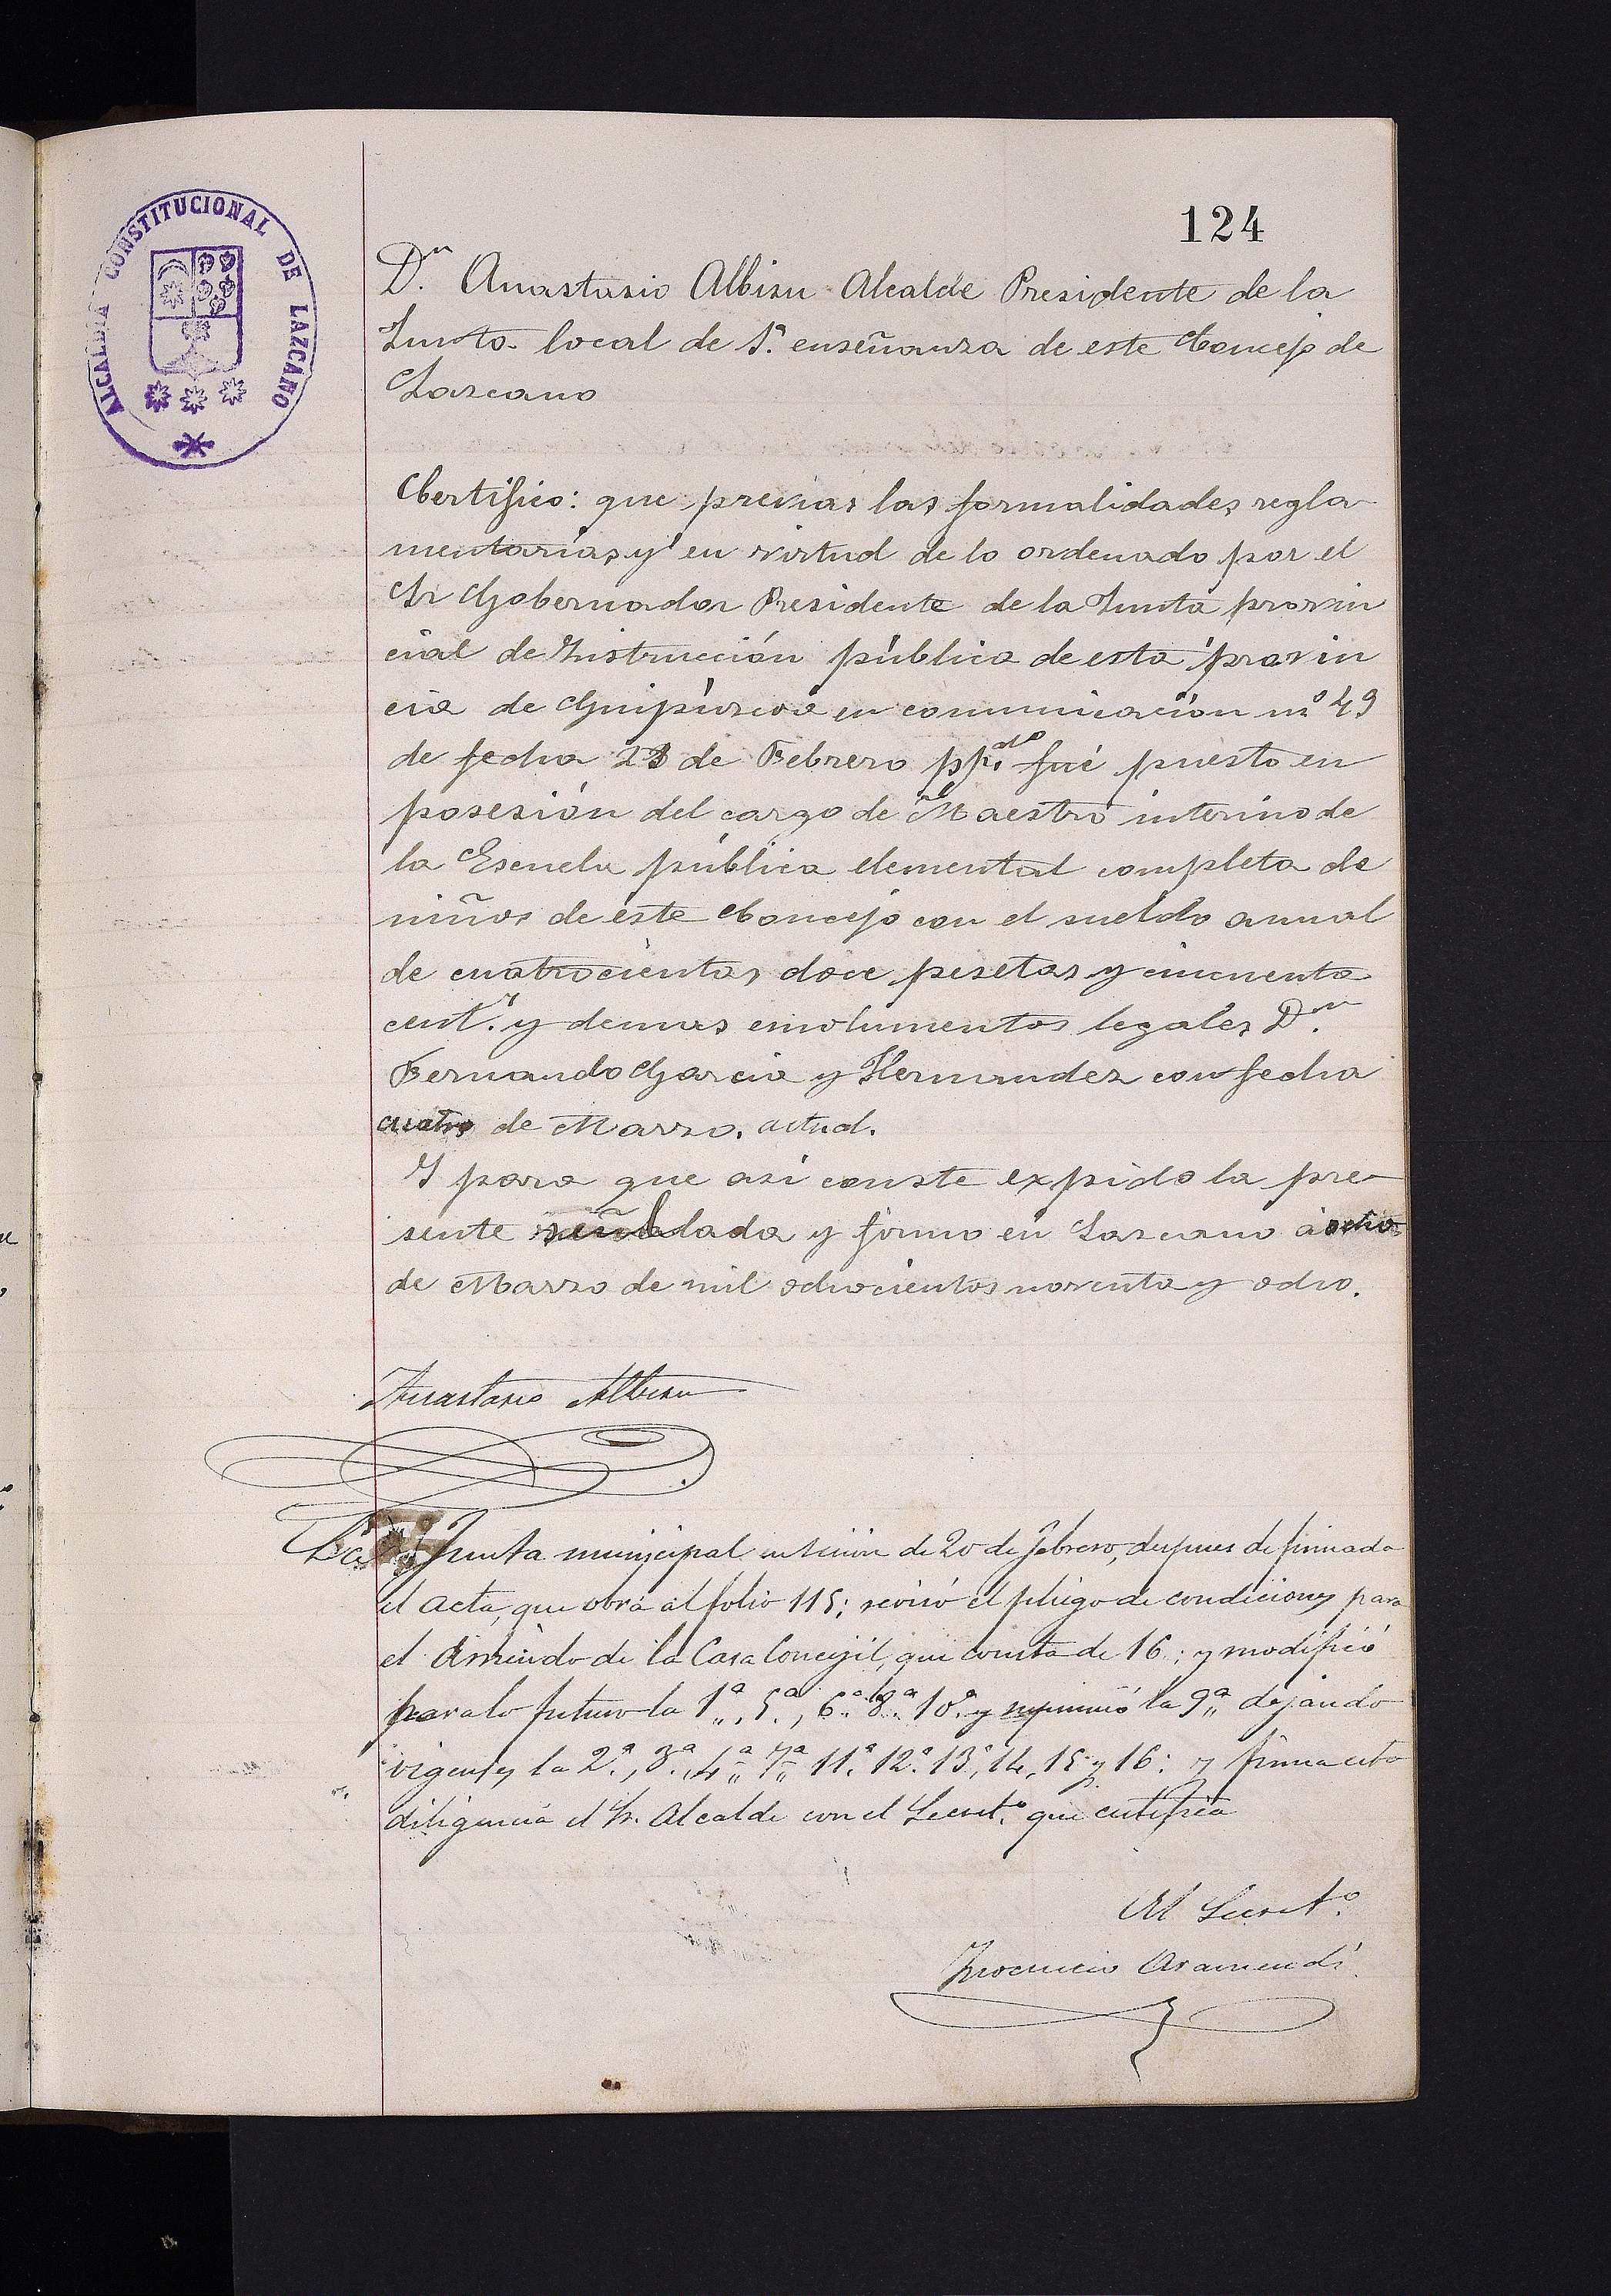 124
ALCALDIA CONSTITUCIONAL DE LAZCANO
Dn. Anastasio Albisu Alcalde Presidente de la
Junta local de 1ª enseñanza de este Concejo de
Lazcano
Certifico: que previas las formalidades regla
mentarias y en virtud de lo ordenado por el
Sr Gobernador Presidente de la Junta provin
cial de Instrucción pública de esta provin
cia de Guipúzcoa en comunicación nº 49
de fecha 23 de Febrero ppdo. fué puesto en
posesión del cargo de Maestro interino de
la Escuela pública elemental completa de
niños de este Concejo con el sueldo anual
de cuatrocientas doce pesetas y cincuenta
cents. y demas emolumentos legales Dn.
Fernando Garcia y Hernandez con fecha
cuatro de Marzo. actual.
Y para que asi conste expido la pre
sente sellada y firmo en Lazcano á ocho
de Marzo de mil ochocientos noventa y ocho.
Anastasio Albisu
La Junta municipal en sesion de 20 de febrero, despues de firmada
el acta, que obra al folio 115; revisó el pliego de condiciones para
el arriendo de la Casa Concejil, que consta de 16; y modificó
para lo futuro la 1ª, 5ª, 6ª 8ª 10ª y suprimió la 9ª dejando
vigentes la 2ª, 3ª, 4ª 7ª 11ª 12ª 13ª, 14, 15 y 16: y firma esta
diligencia el Sr. Alcalde con el Secretº que certifica
El Secretº
Inocencio Aramendi